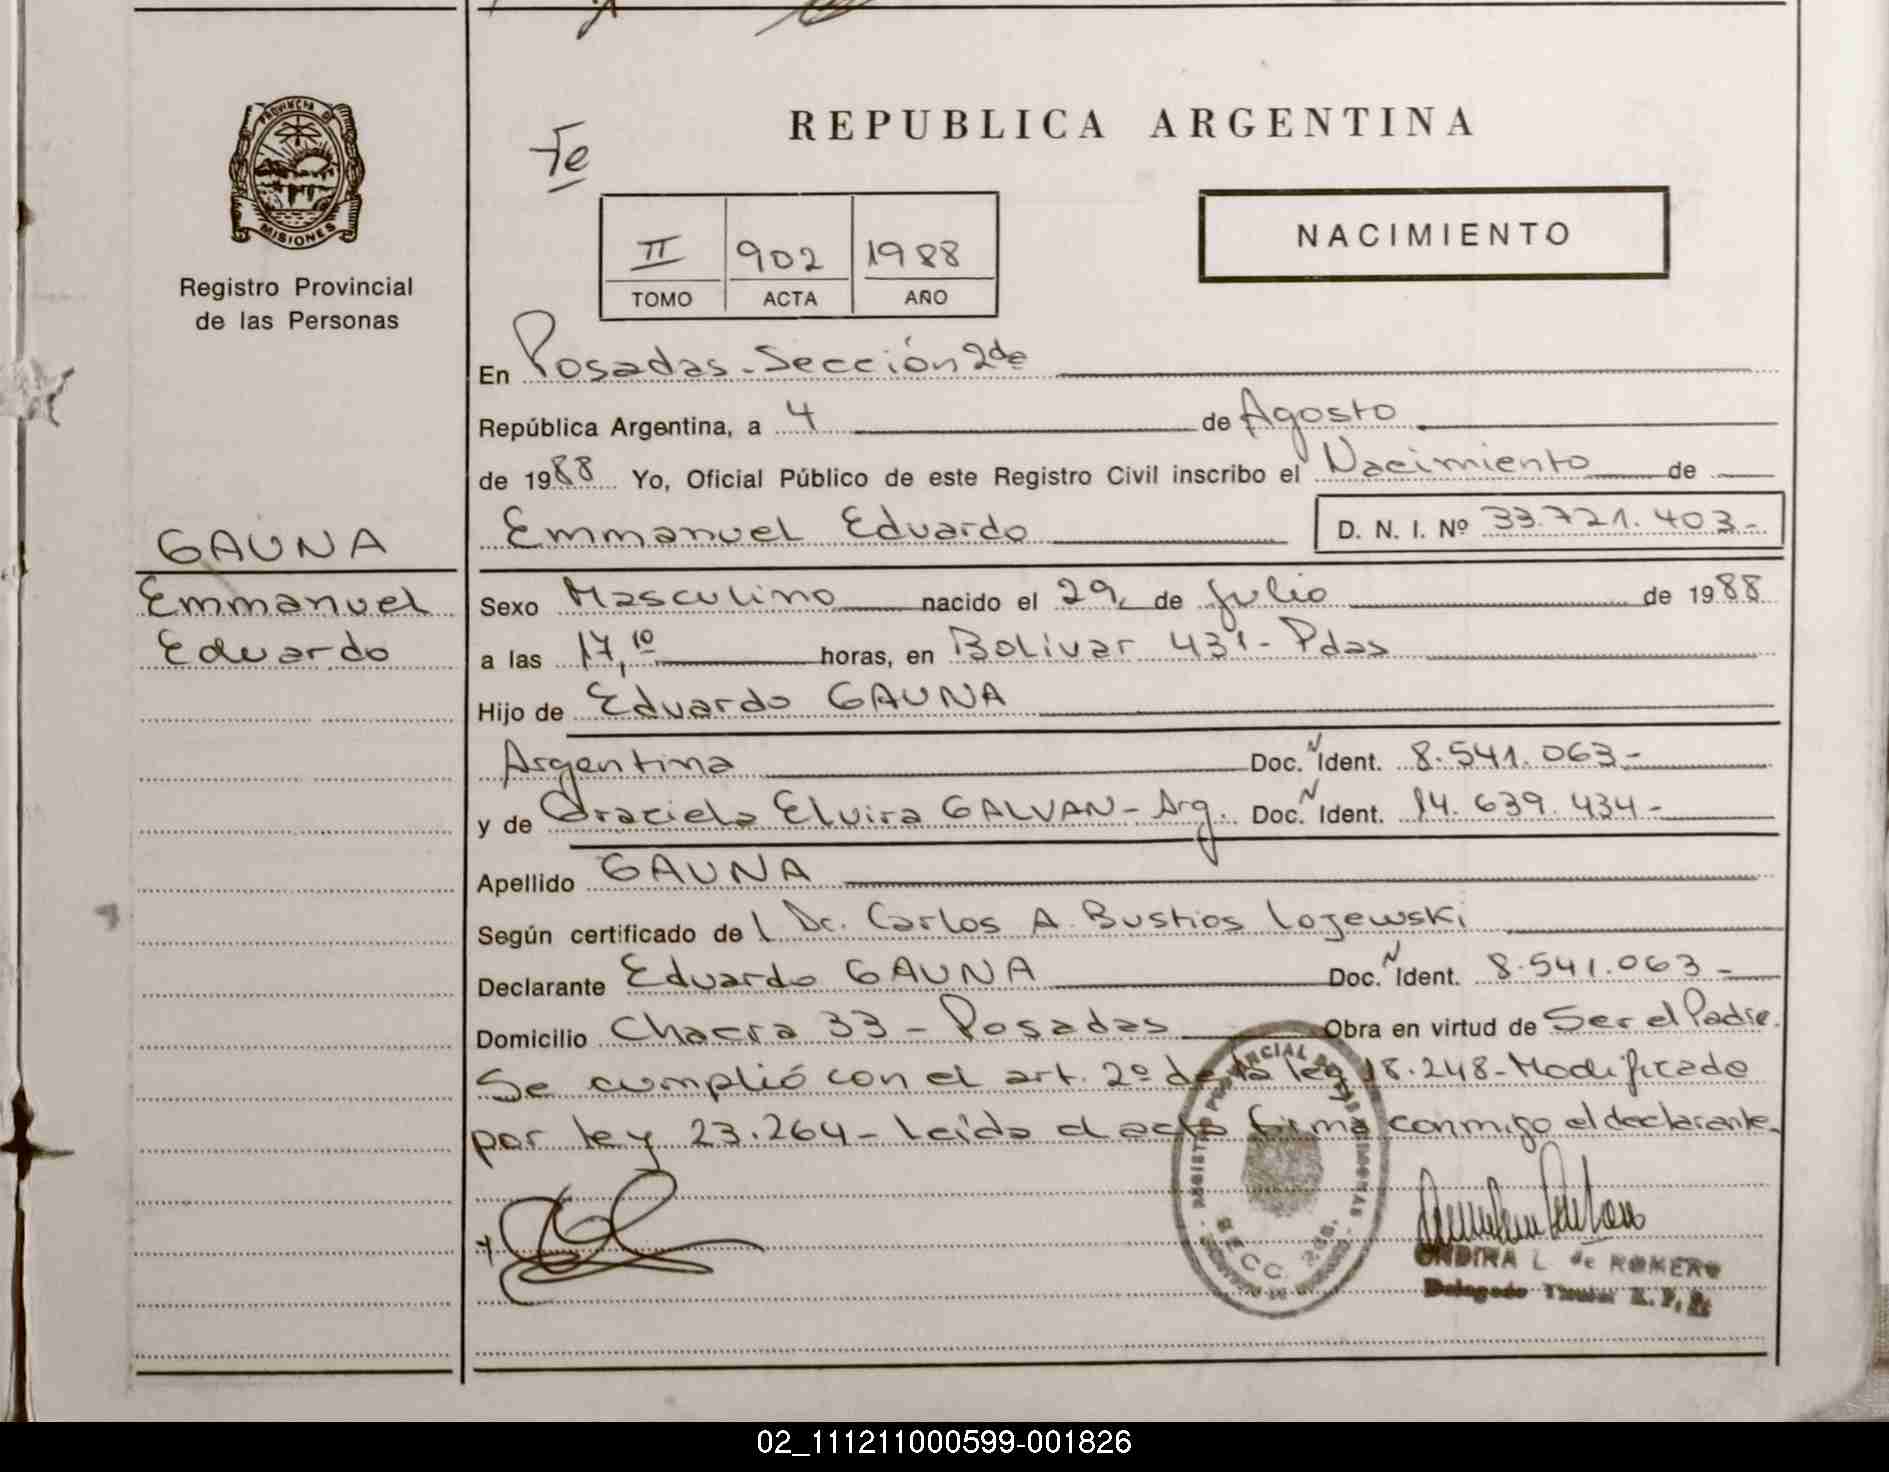 PROVINCIA D
MISIONES
Registro Provincial
de las Personas
GAUNA
Emmanuel
Eduardo
REPUBLICA ARGENTINA
Fe
II 902 1988
TOMO ACTA AÑO
NACIMIENTO
En Posadas - Sección 2da
República Argentina, a 4 de Agosto
de 1988 Yo, Oficial Público de este Registro Civil inscribo el Nacimiento de
Emmanuel Eduardo D. N. I. Nº 33.721.403-
Sexo Masculino nacido el 29 de Julio de 1988
a las 17,10 horas, en Bolivar 431 - Pdas
Hijo de Eduardo GAUNA
Argentina Doc. N Ident. 8.541.063-
y de Graciela Elvira GALVAN - Arg. Doc. N Ident. 14.639.434-
Apellido GAUNA
Según certificado del Dr. Carlos A. Bustios Lojewski
Declarante Eduardo GAUNA Doc. N Ident. 8.541.063-
Domicilio Chacra 33 - Posadas Obra en virtud de Ser el Padre.
Se cumplió con el art. 2º de la ley 18.248 - Modificado
por ley 23.264 - Leída el acta firma conmigo el declarante.
SECC. 2da.
ONDINA L de ROMERO
Delegado Titular R. P. P.
02_111211000599-001826